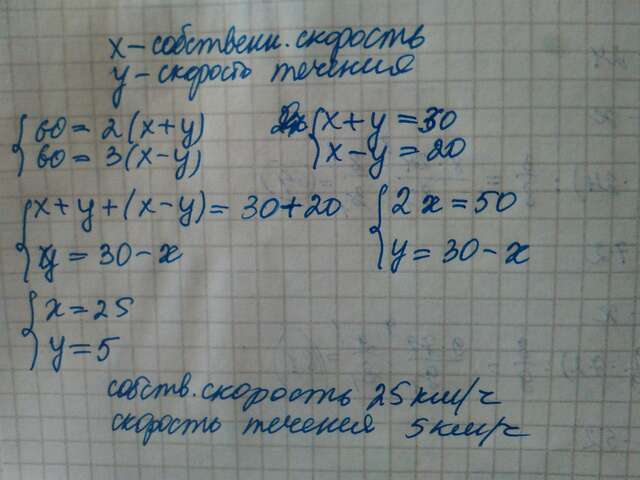 x – собственн. скорость
y – скорость течения
{ 60 = 2(x+y)
{ 60 = 3(x-y)
{ x + y = 30
{ x - y = 20
{ x + y + (x - y) = 30 + 20
{ y = 30 - x
{ 2x = 50
{ y = 30 - x
{ x = 25
{ y = 5
собств. скорость 25 км/ч
скорость течения 5 км/ч